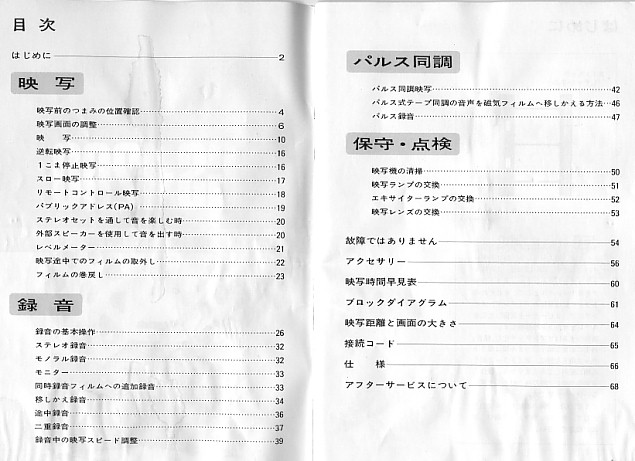 目次
はじめに 2
映写
映写前のつまみの位置確認 4
映写画面の調整 6
映 写 10
逆転映写 16
1こま停止映写 16
スロー映写 17
リモートコントロール映写 18
パブリックアドレス(PA) 19
ステレオセットを通して音を楽しむ時 20
外部スピーカーを使用して音を出す時 20
レベルメーター 21
映写途中でのフィルムの取外し 22
フィルムの巻戻し 23
録音
録音の基本操作 26
ステレオ録音 32
モノラル録音 32
モニター 33
同時録音フィルムへの追加録音 33
移しかえ録音 34
途中録音 36
二重録音 37
録音中の映写スピード調整 39
パルス同調
パルス同調映写 42
パルス式テープ同調の音声を磁気フィルムへ移しかえる方法 46
パルス録音 47
保守・点検
映写機の清掃 50
映写ランプの交換 51
エキサイターランプの交換 52
映写レンズの交換 53
故障ではありません 54
アクセサリー 56
映写時間早見表 60
ブロックダイアグラム 61
映写距離と画面の大きさ 64
接続コード 65
仕 様 66
アフターサービスについて 68